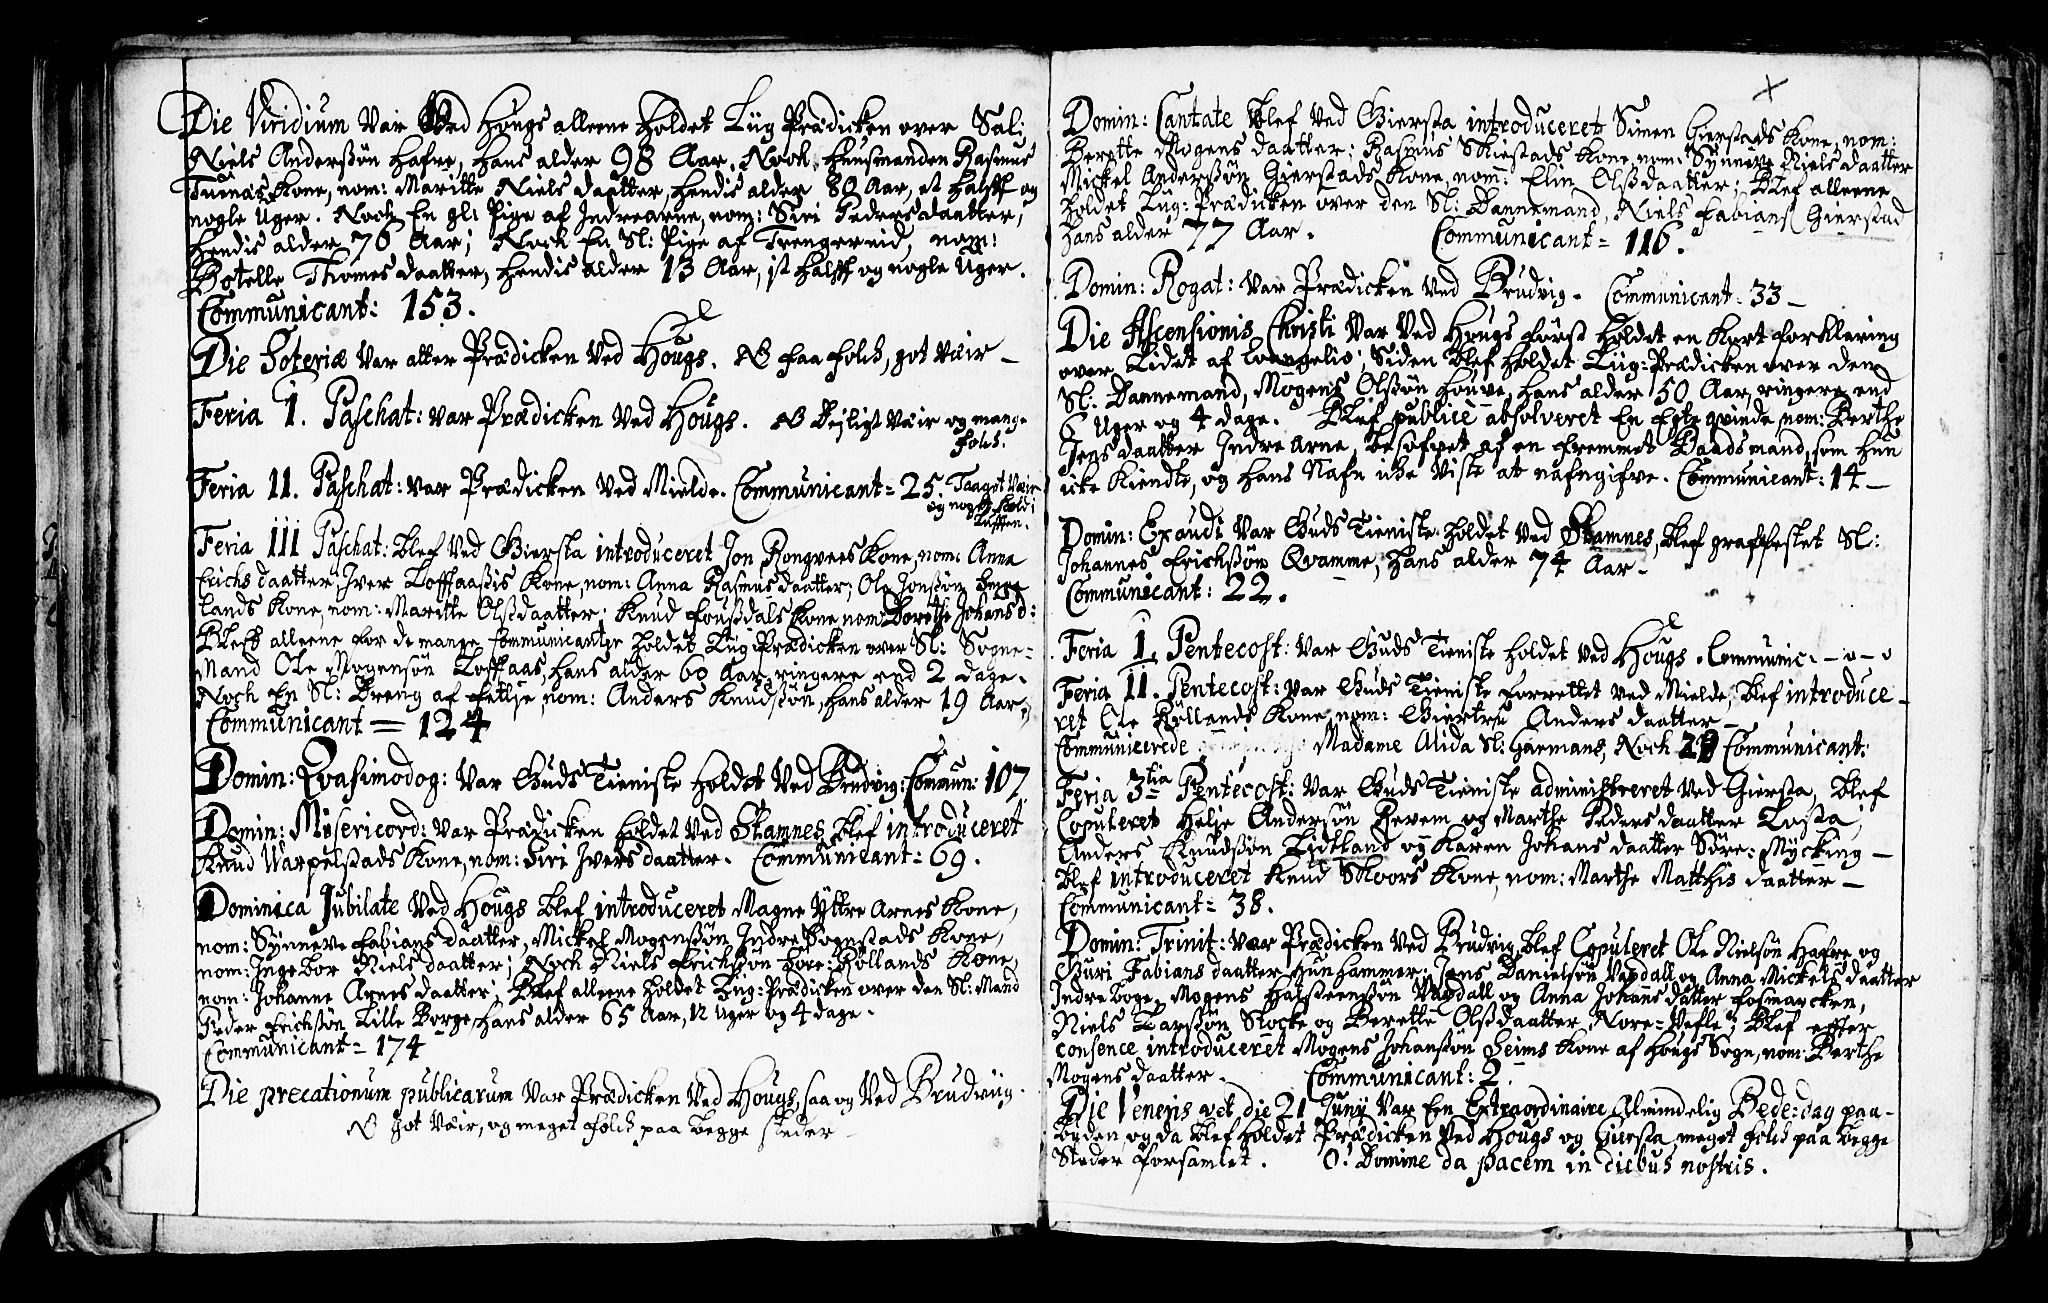 Die Viridium var Ved Hougs alleene Holdet Liig Prædicken over Sal:
Niels Anderssøn Hafre, Hans alder 98 Aar. Nock Huusmanden Rasmus
Kone, nom: Maritte Niels daatter, Hendis alder 80 Aar, et Halff og
nogle Uger. Nock En gl: Pige af Indrearne, nom: Siri Peders daatter,
Hendis alder 76 Aar; Nock En Sl: Pige af Trengereid, nom:
Botelle Thomes daatter, Hendis alder 13 Aar, ist Halff og nogle Uger.
Communicant: 153.
Die Soteriæ var atter Prædicken Ved Hougs. NB faa folck, got Væir –
Feria 1. Paschat: var Prædicken Ved Hougs. NB Dejligt Væir og mange
folck.
Feria 11. Paschat: var Prædicken Ved Mielde. Communicant = 25. Taaget Væir
og noget Kold i
Lufften.
Feria III Paschat: blef Ved Giersta introduceret Jon Rongvees Kone, nom: Anna
Erichs daatter; Iver Toffaassis Kone, nom: Anna Rasmus daatter; Ole Jonssøn
lands Kone, nom: Maritte Olssdaatter; Knud Foussdals Kone nom: Dorethe Johans d:
Bleff alleene for de mange Communicanter Holdet Liig Prædicken over Sl: Sogne-
Mand Ole Mogensøn Toffaas, Hans alder 60 Aar, ringere end 2 dage.
Nock En Sl: Dreng af, nom: Anders Knudssøn, Hans alder 19 Aar,
Communicant = 124
Domin: Qvasimodog: Var Guds Tieniste Holdet Ved Brudvig: Commun: 107
Domin: Mysericord: var Prædicken Holdet Ved Hamnes, blef introduceret
Knud Warpelstads Kone, nom: Siri Ivers daatter. Communicant = 69.
Dominica Jubilate Ved Hougs blef introduceret Magne Yttre Arnes Kone,
nom: Synneve Fabians daatter, Mickel Mogenssøn Indre Songstads Kone,
nom: Ingebor Niels daatter; Nock Niels Erichssøn Søre: Røllands Kone,
nom: Johanne Arnes daatter; Blef alleene Holdet Liig=Prædicken over den Sl: Mand
Peder Erichsøn Lille Borge, Hans alder 65 Aar, 12 Uger og 4 dage.
Communicant = 174
Die precationum publicarum var Prædicken Ved Hougs, saa og Ved Brudviig.
NB got Væir, og meget folck paa begge steder –
Domin: Cantate blef Ved Giersta introduceret Simen Gierstads Kone, nom:
Berette Mogens daatter; Rasmus Skiestads Kone, nom: Synneve Niels daatter
Mickel Anderssøn Gierstads Kone, nom: Elin Olssdaatter; Blef alleene
Holdet Liig=Prædicken over den Sl: Dannemand, Niels Fabians Gierstad
Hans alder 77 Aar. Communicant = 116.
Domin: Rogat: var Prædicken Ved Brudvig. Communicant: 33 –
Die Ascensionis Christi var Ved Hougs først Holdet en Kort forklaring
over Lidet af Evangelio; Siden blef Holdet Liig=Prædicken over den
Sl: Dannemand, Mogens Olssøn Houve, Hans alder 50 Aar, ringere end
6 Uger og 4 dage. Blef publicè absolveret En Egteqvinde, nom: Berthe
Jens daatter Indre Arne, besofvet af en fremmet Baadsmand, som Hun
icke Kiendte, og Hans Nafn icke Viste at nafngifve. Communicant: 14 –
Domin: Exaudi var Guds Tieniste Holdet Ved Hamnes, blef graffæstet Sl:
Johannes Erichssøn Qvamme, Hans alder 74 Aar –
Communicant: 22.
Feria 1. Pentecost: var Guds Tieniste Holdet Ved Hougs. Communic: – o – o
Feria II. Pentecost: var Guds Tieniste forrettet Ved Mielde, blef introduce-
ret Ole Røllands Kone, nom: Giertru Anders daatter –
Communicerede Madame Alida Sl: Harmans, Nock 29 Communicant:
Feria 3tia Pentecost: var Guds Tieniste administreret Ved Giersta, blef
Copuleret Helje Andersøn Revem og Marthe Peders daatter Tosta,
Anders Knudssøn Lidtland og Karen Johans daatter Søre: Mycking –
Blef introduceret Knud Skoors Kone, nom: Marthe Matthis daatter –
Communicant = 38.
Domin: Trinit: var Prædicken Ved Brudvig, blef Copuleret Ole Nielsøn Hafre og
Guri Fabians daatter Hunhammer; Jens Danielsøn Vaxdall og Anna Mickels daatter
Indre boge, Mogens Halsteenssøn Vaxdall og Anna Johans datter Fosmarcken,
Niels Larssøn Stocke og Berette Olssdaatter Nore=Vefle; blef effter
consence introduceret Mogens Johanssøn Seims Kone af Hougs Sogn, nom: Berthe
Mogens daatter. Communicant: 2.
Die Veneris vel die 21 Juny var En Extraordinaire Almindelig Bede=dag paa-
byden, og da blef Holdet Prædicken Ved Hougs og Giersta, meget folck paa begge
Steder forsamlet. O! Domine da pacem in diebus nostris.